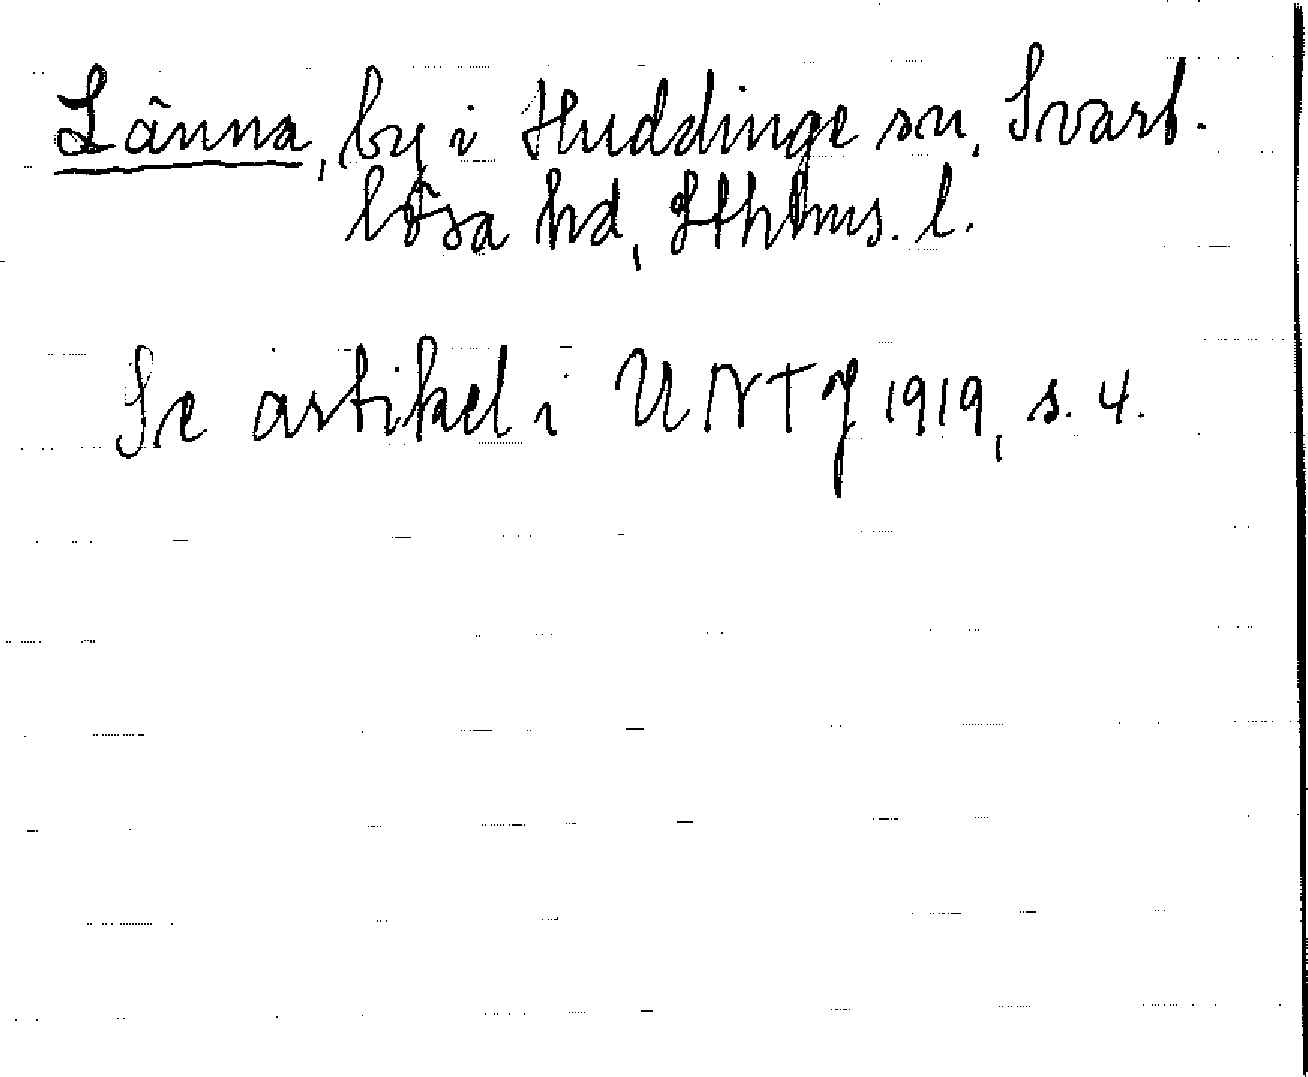 Länna, by i Huddinge sn, Svart-
lösa hd, Sthlms. l.
Se artikel i UNTJ 1919, s. 4.